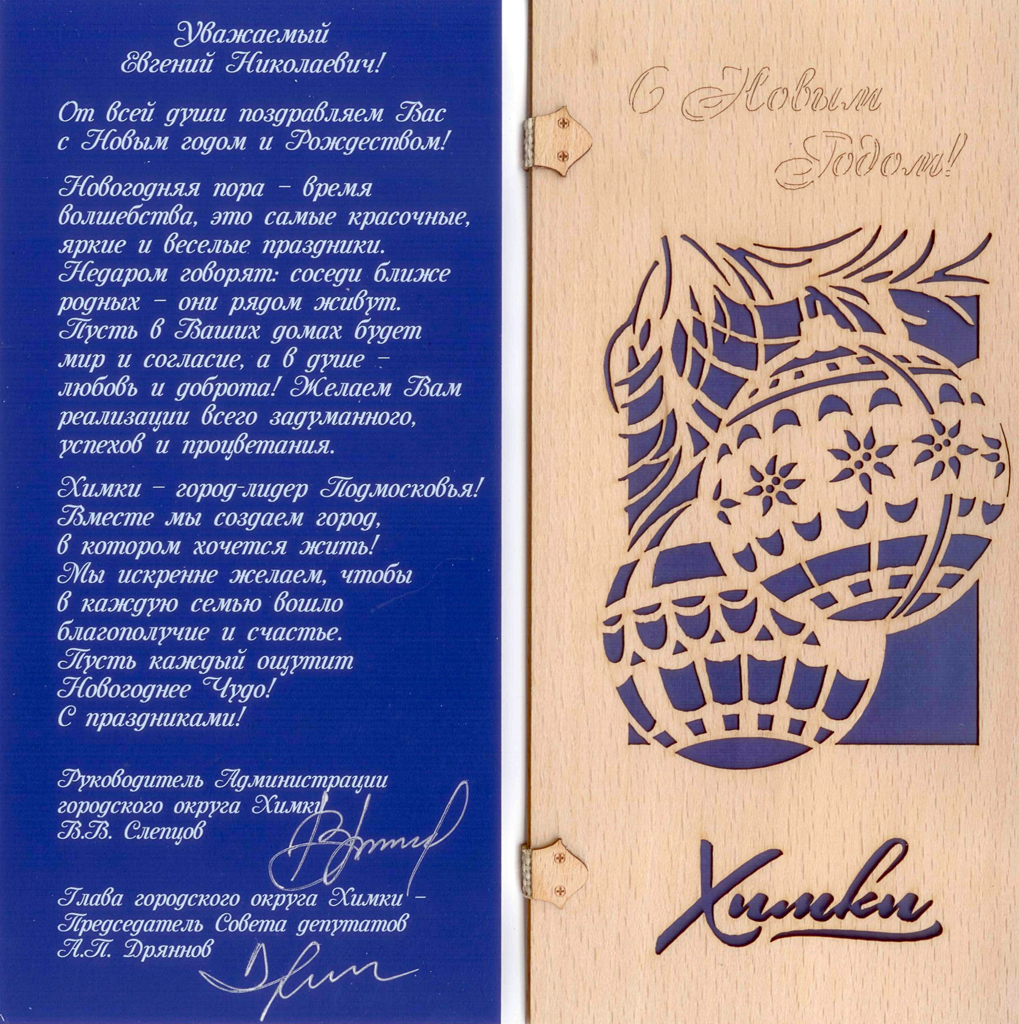 Уважаемый
Евгений Николаевич!
От всей души поздравляем Вас
с Новым годом и Рождеством!
Новогодняя пора – время
волшебства, это самые красочные,
яркие и веселые праздники.
Недаром говорят: соседи ближе
родных – они рядом живут.
Пусть в Ваших домах будет
мир и согласие, а в душе –
любовь и доброта! Желаем Вам
реализации всего задуманного,
успехов и процветания.
Химки – город-лидер Подмосковья!
Вместе мы создаем город,
в котором хочется жить!
Мы искренне желаем, чтобы
в каждую семью вошло
благополучие и счастье.
Пусть каждый ощутит
Новогоднее Чудо!
С праздниками!
Руководитель Администрации
городского округа Химки
В.В. Слепцов
Глава городского округа Химки –
Председатель Совета депутатов
А.П. Дряннов
С Новым
Годом!
Химки